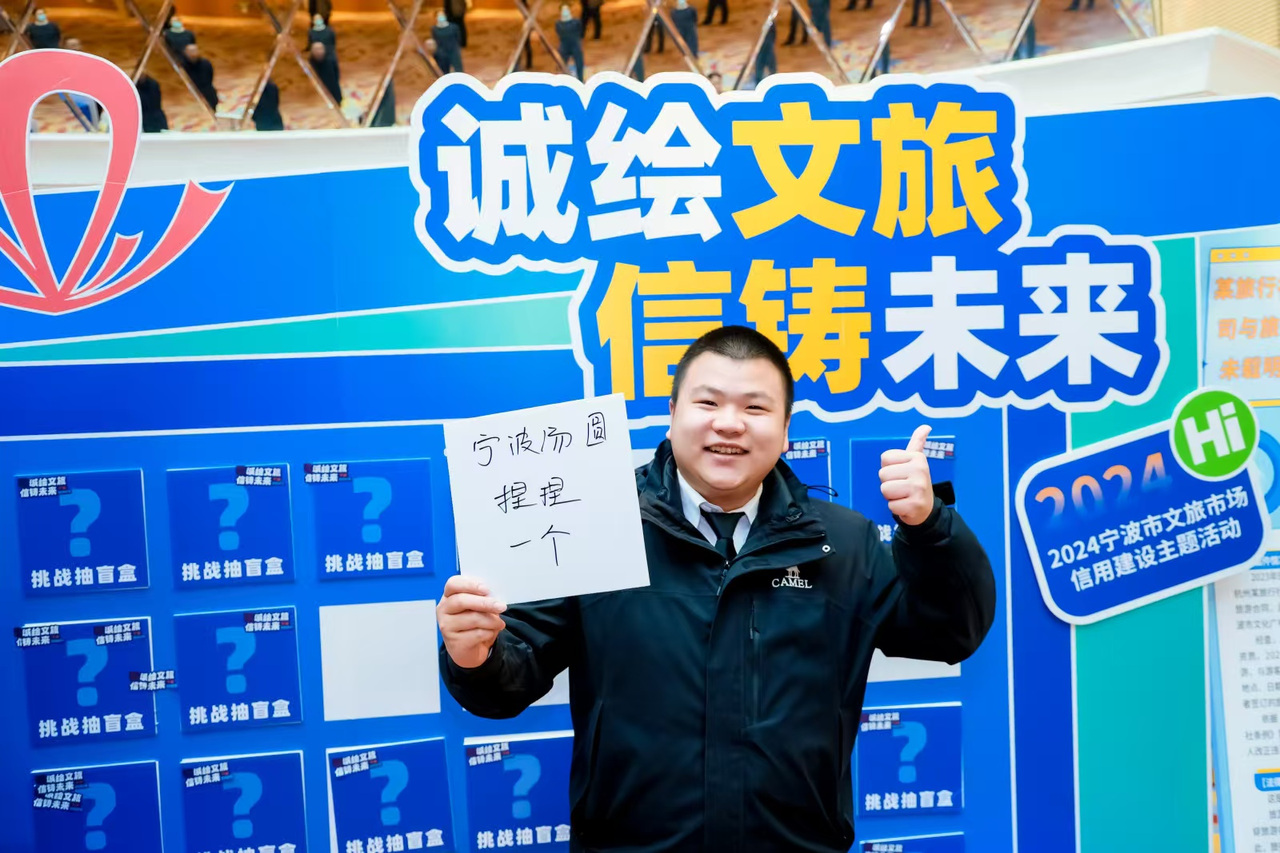 诚绘文旅
信铸未来
宁波汤圆
捏捏
一个
CAMEL
Hi
2024
2024宁波市文旅市场
信用建设主题活动
诚绘文旅
信铸未来
?
挑战抽盲盒
诚绘文旅
信铸未来
?
挑战抽盲盒
诚绘文旅
信铸未来
?
挑战抽盲盒
诚绘文旅
信铸未来
?
挑战抽盲盒
诚绘文旅
信铸未来
?
挑战抽盲盒
诚绘文旅
信铸未来
?
诚绘文旅
信铸未来
?
挑战抽盲盒
诚绘文旅
信铸未来
?
挑战抽盲盒
诚绘文旅
信铸未来
?
挑战抽盲盒
诚绘文旅
信铸未来
?
挑战抽盲盒
某旅行
司与旅